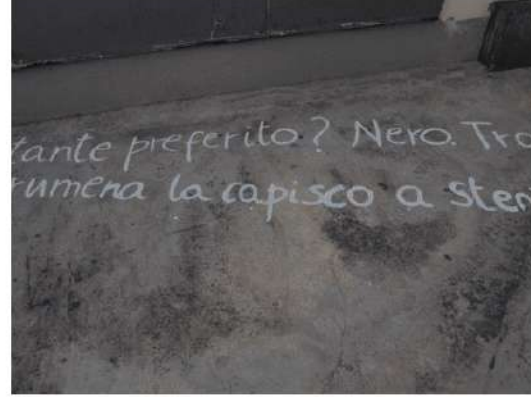 tante preferito? Nero. Tra
rumena la capisco a sten